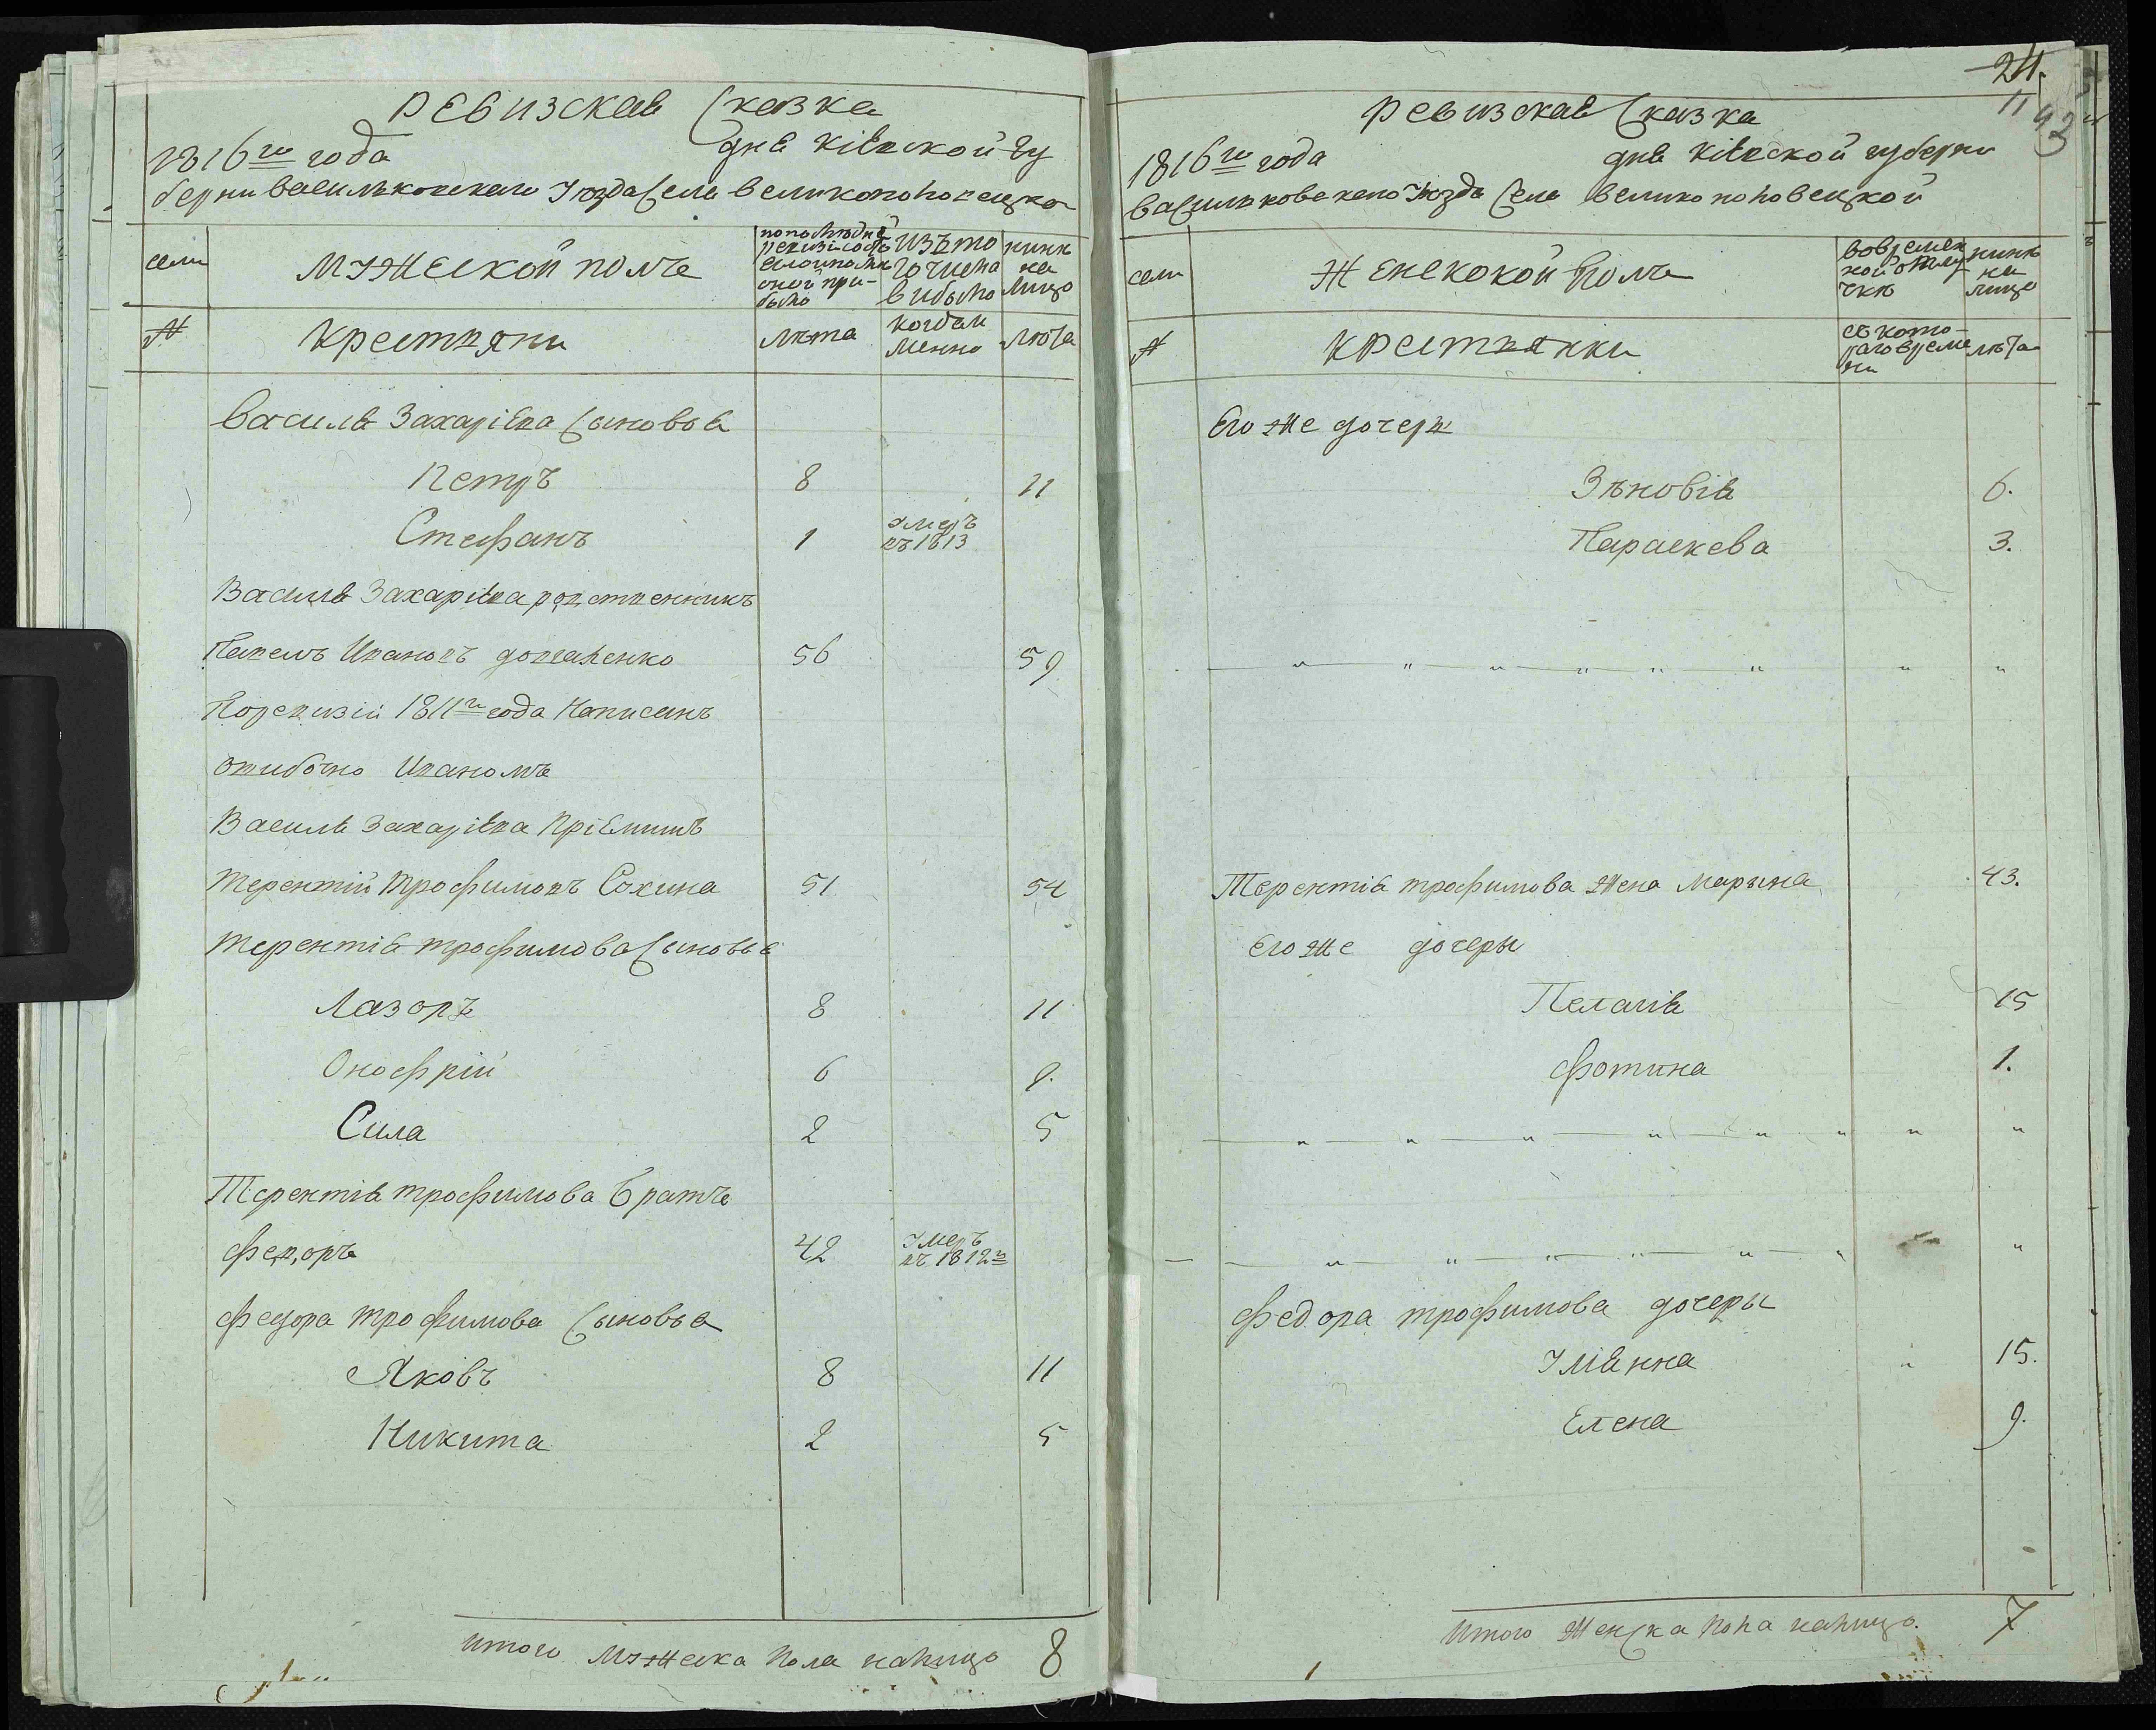 Ревизская Сказка
1816го года дня Кіевской гу
берни Васильковскаго Уезда Села Великополовецко
семи
Мужеской полъ
по последней ревизіи состояло и после оной прибыло
изъ того числа выбыло
ныне на лицо
№
Крестяни
лета
когда именно
лета
Василя Захаріева Сыновья
Петръ 8 11
Стефанъ 1 умеръ въ 1813
Василя Захаріева родственникъ
Павелъ Ивановъ довгаленко 56 59
По ревизіи 1811го года написанъ
ошибочно Иваномъ
Василя Захаріева Пріемишъ
Терентій Трофимовъ Сохина 51 54
Терентія трофимова Сыновья
Лазоръ 8 11
Онофрій 6 9.
Сила 2 5
Терентія трофимова Братъ
федоръ 42 умеръ въ 1812м
федора трофимова Сыновья
Яковъ 8 11
Никита 2 5
Итого мужеска пола налицо 8
24.
11
43
Ревизская Сказка
1816го года дня Кіевской губерни
Васильковскаго Уезда Села Великополовецкой
семи
Женскокой полъ
во временной отлучке
ныне на лицо
№
Крестянки
съ котораго времени
лета
Его же дочеры
Зеновія 6.
Параскева 3.
Терентія трофимова жена Марына 43.
Его же дочеры
Пелагія 15
Фотина 1.
федора трофимова дочеры
Уліанна 15.
Елена 9.
Итого Женска пола налицо. 7